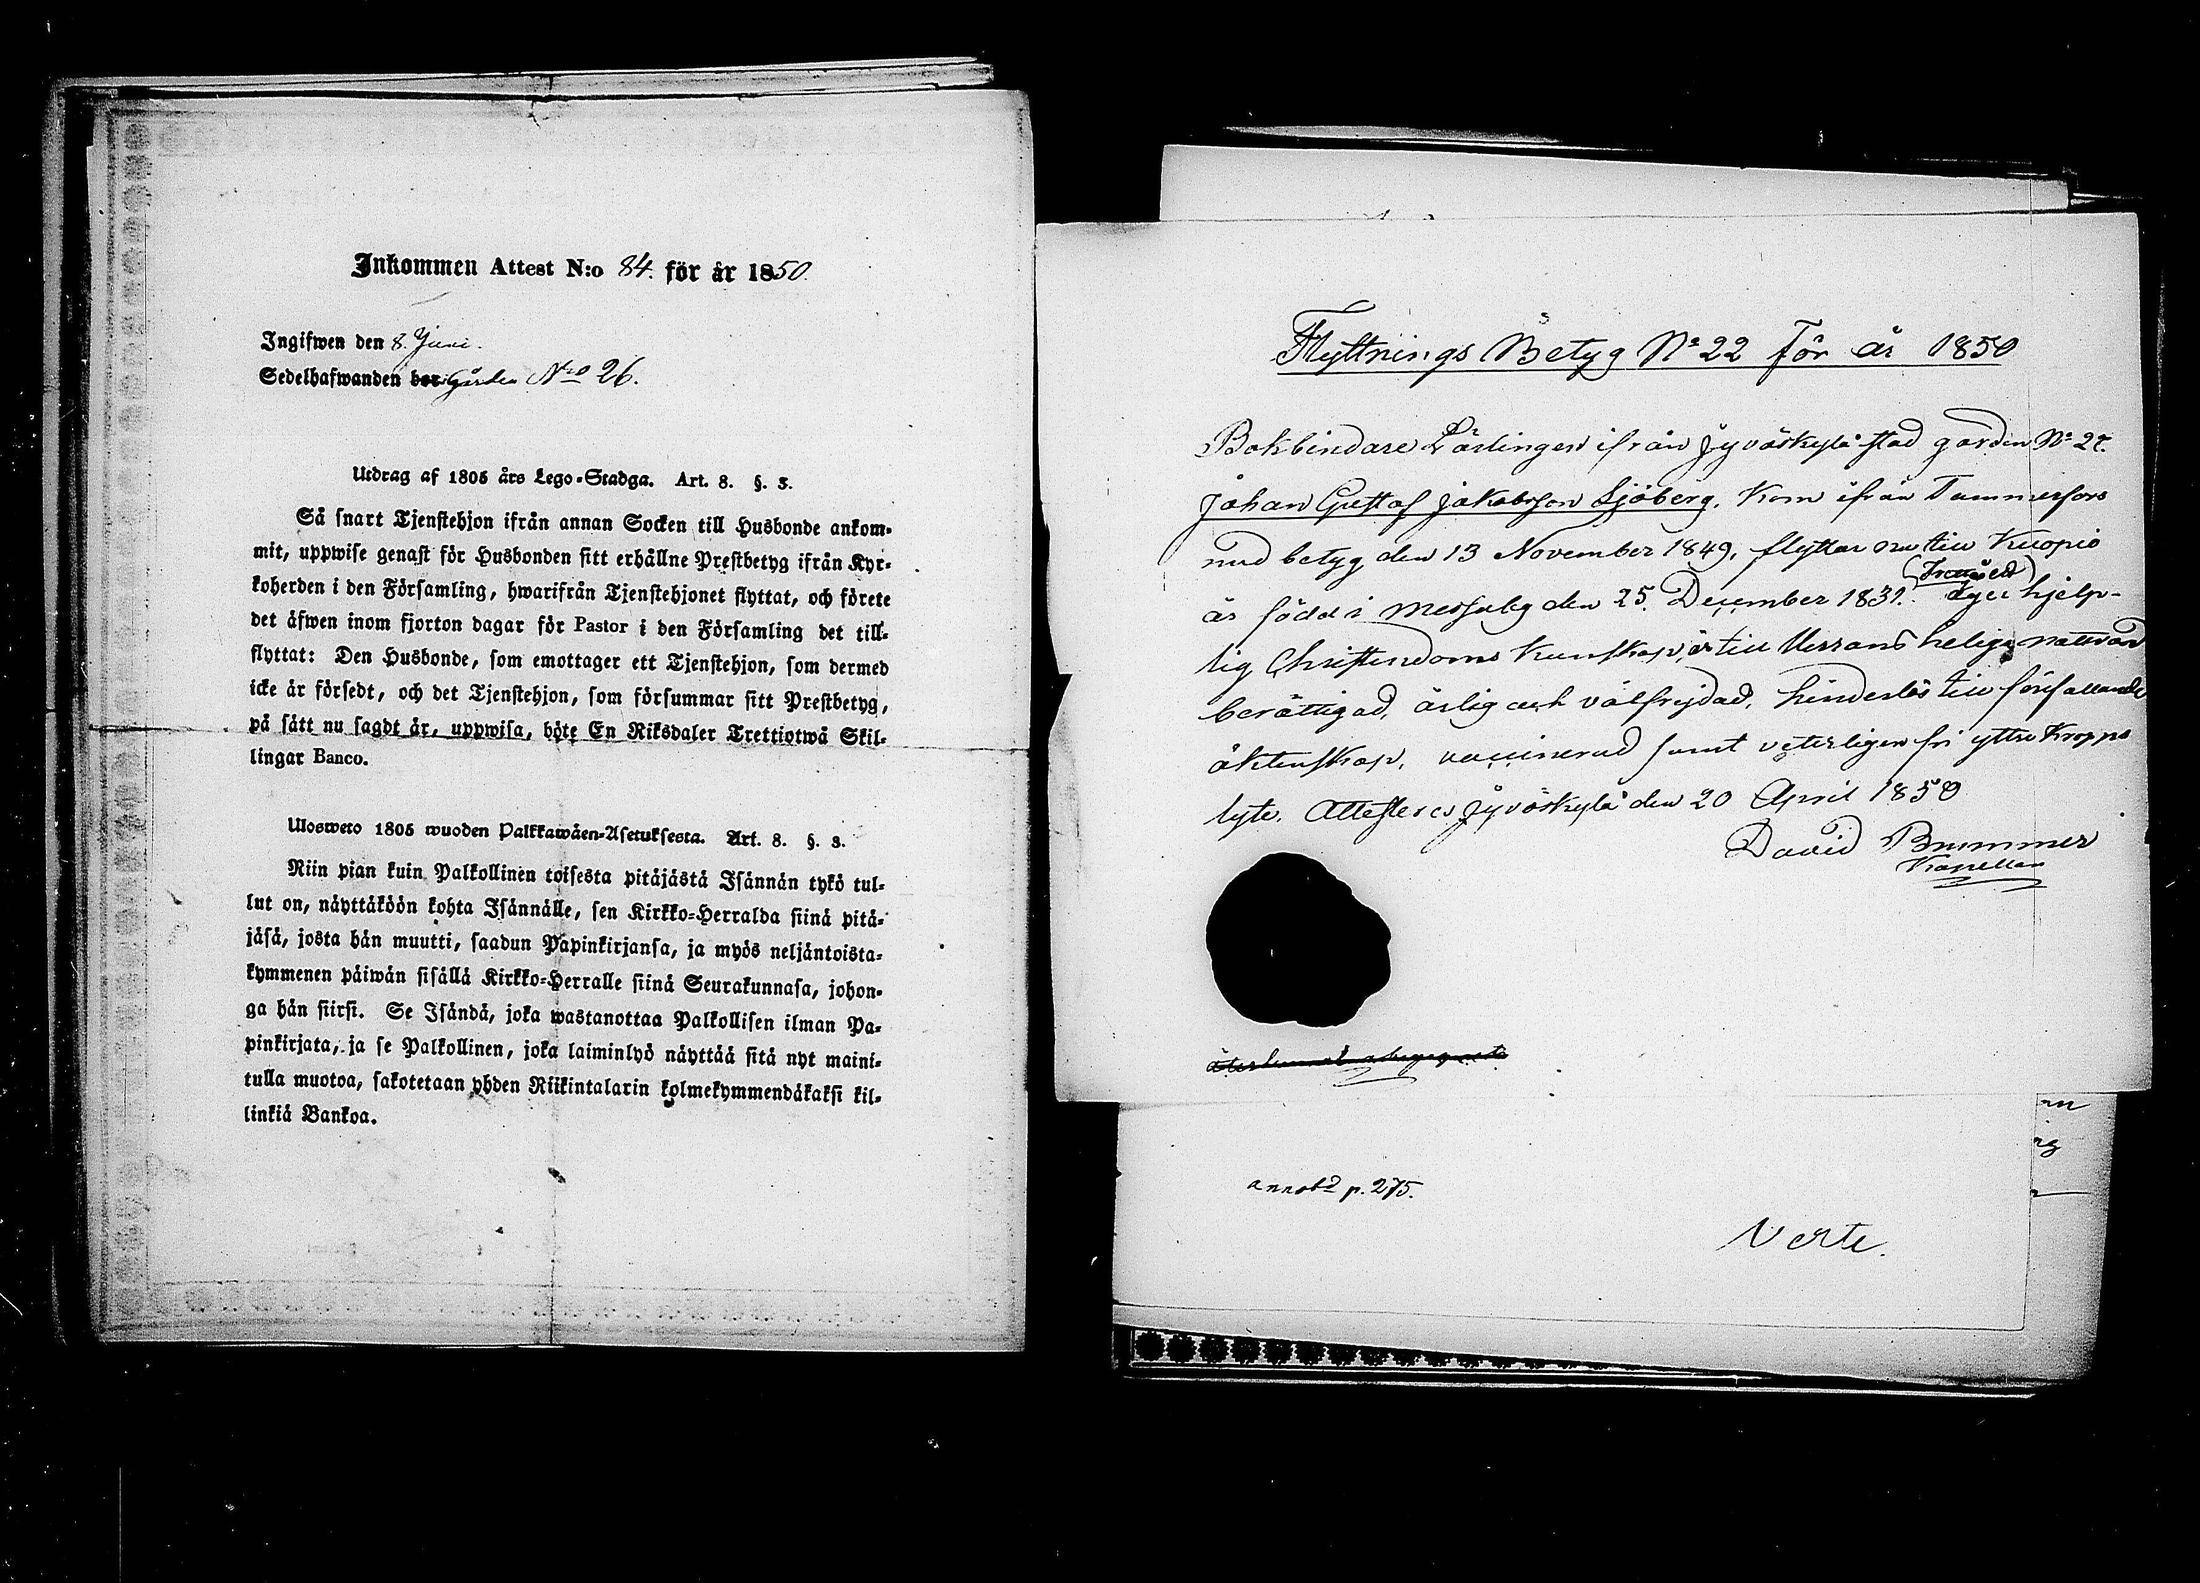 Inkommen Attest N:o 84. för år 1850.
Ingifwen den 8. Juni.
Sedelhafwanden bor i Gården Nro 26.
Utdrag af 1805 års Lego-Stadga. Art. 8. §. 3.
Så snart Tjenstehjon ifrån annan Socken till Husbonde ankom-
mit, uppwise genast för Husbonden sitt erhållne Prestbetyg ifrån Kyr-
koherden i den Församling, hwarifrån Tjenstehjonet flyttat, och förete
det äfwen inom fjorton dagar för Pastor i den Församling det till-
flyttat: Den Husbonde, som emottager ett Tjenstehjon, som dermed
icke är försedt, och det Tjenstehjon, som försummar sitt Prestbetyg,
på sätt nu sagdt är, uppwisa, böte En Riksdaler Trettiotwå Skil-
lingar Banco.
Ulosweto 1805 wuoden Palkkawäen-Asetuksesta. Art. 8. §. 3.
Niin pian kuin Palkollinen toisesta pitäjästä Isännän tykö tul-
lut on, näyttäköön kohta Isännälle, sen Kirkko-Herralda siinä pitä-
jäsä, josta hän muutti, saadun Papinkirjansa, ja myös neljäntoista-
kymmenen päiwän sisällä Kirkko-Herralle siinä Seurakunnasa, johon-
ga hän siirsi. Se Isändä, joka wastanottaa Palkollisen ilman Pa-
pinkirjata, ja se Palkollinen, joka laiminlyö näyttää sitä nyt maini-
tulla muotoa, sakotetaan yhden Riikintalarin kolmekymmendäkaksi kil-
linkiä Bankoa.
Flyttnings Betyg No 22 för år 1850
Bokbindare Lärlingen ifrån Jyväskylä stad gården No 27.
Johan Gustaf Jakobsson Sjöberg. Kom ifrån Tammerfors
med betyg den 13 November 1849, flyttar nu till Kuopio
är född i Messuby den 25. December 1831. äger hjelp-
lig Christendoms Kunskap, är till Herrans heliga nattvard
berättigad, ärlig och välfrejdad, hinderlös till förefallande
äktenskap, vaccinerad samt veterligen fri yttre Kropps
lyte. Attesteres Jyväskylä den 20 April 1850
David Brummer
Kapellan
annotd p. 275.
Verte.